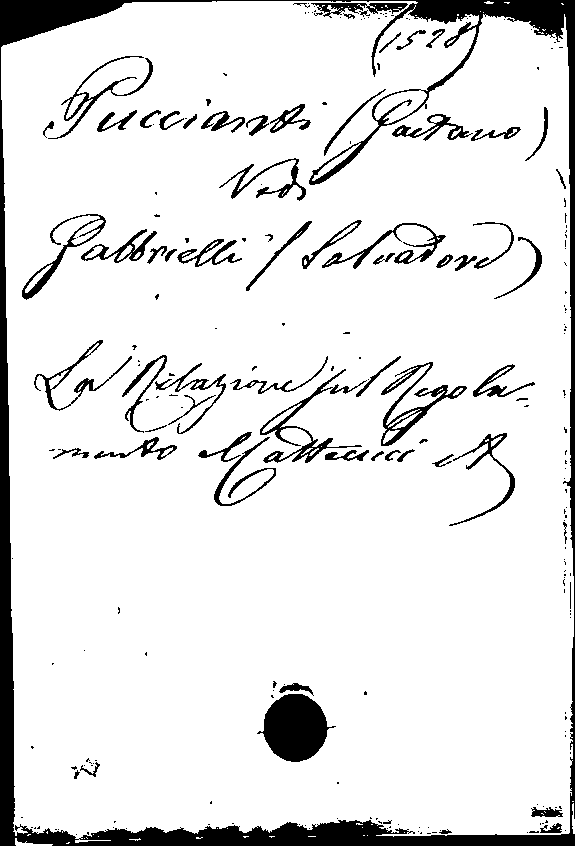 (1528)
Puccianti (Gaetano)
Vedi
Gabbrielli (Salvadore)
La Relazione sul Regola-
mento Matteucci